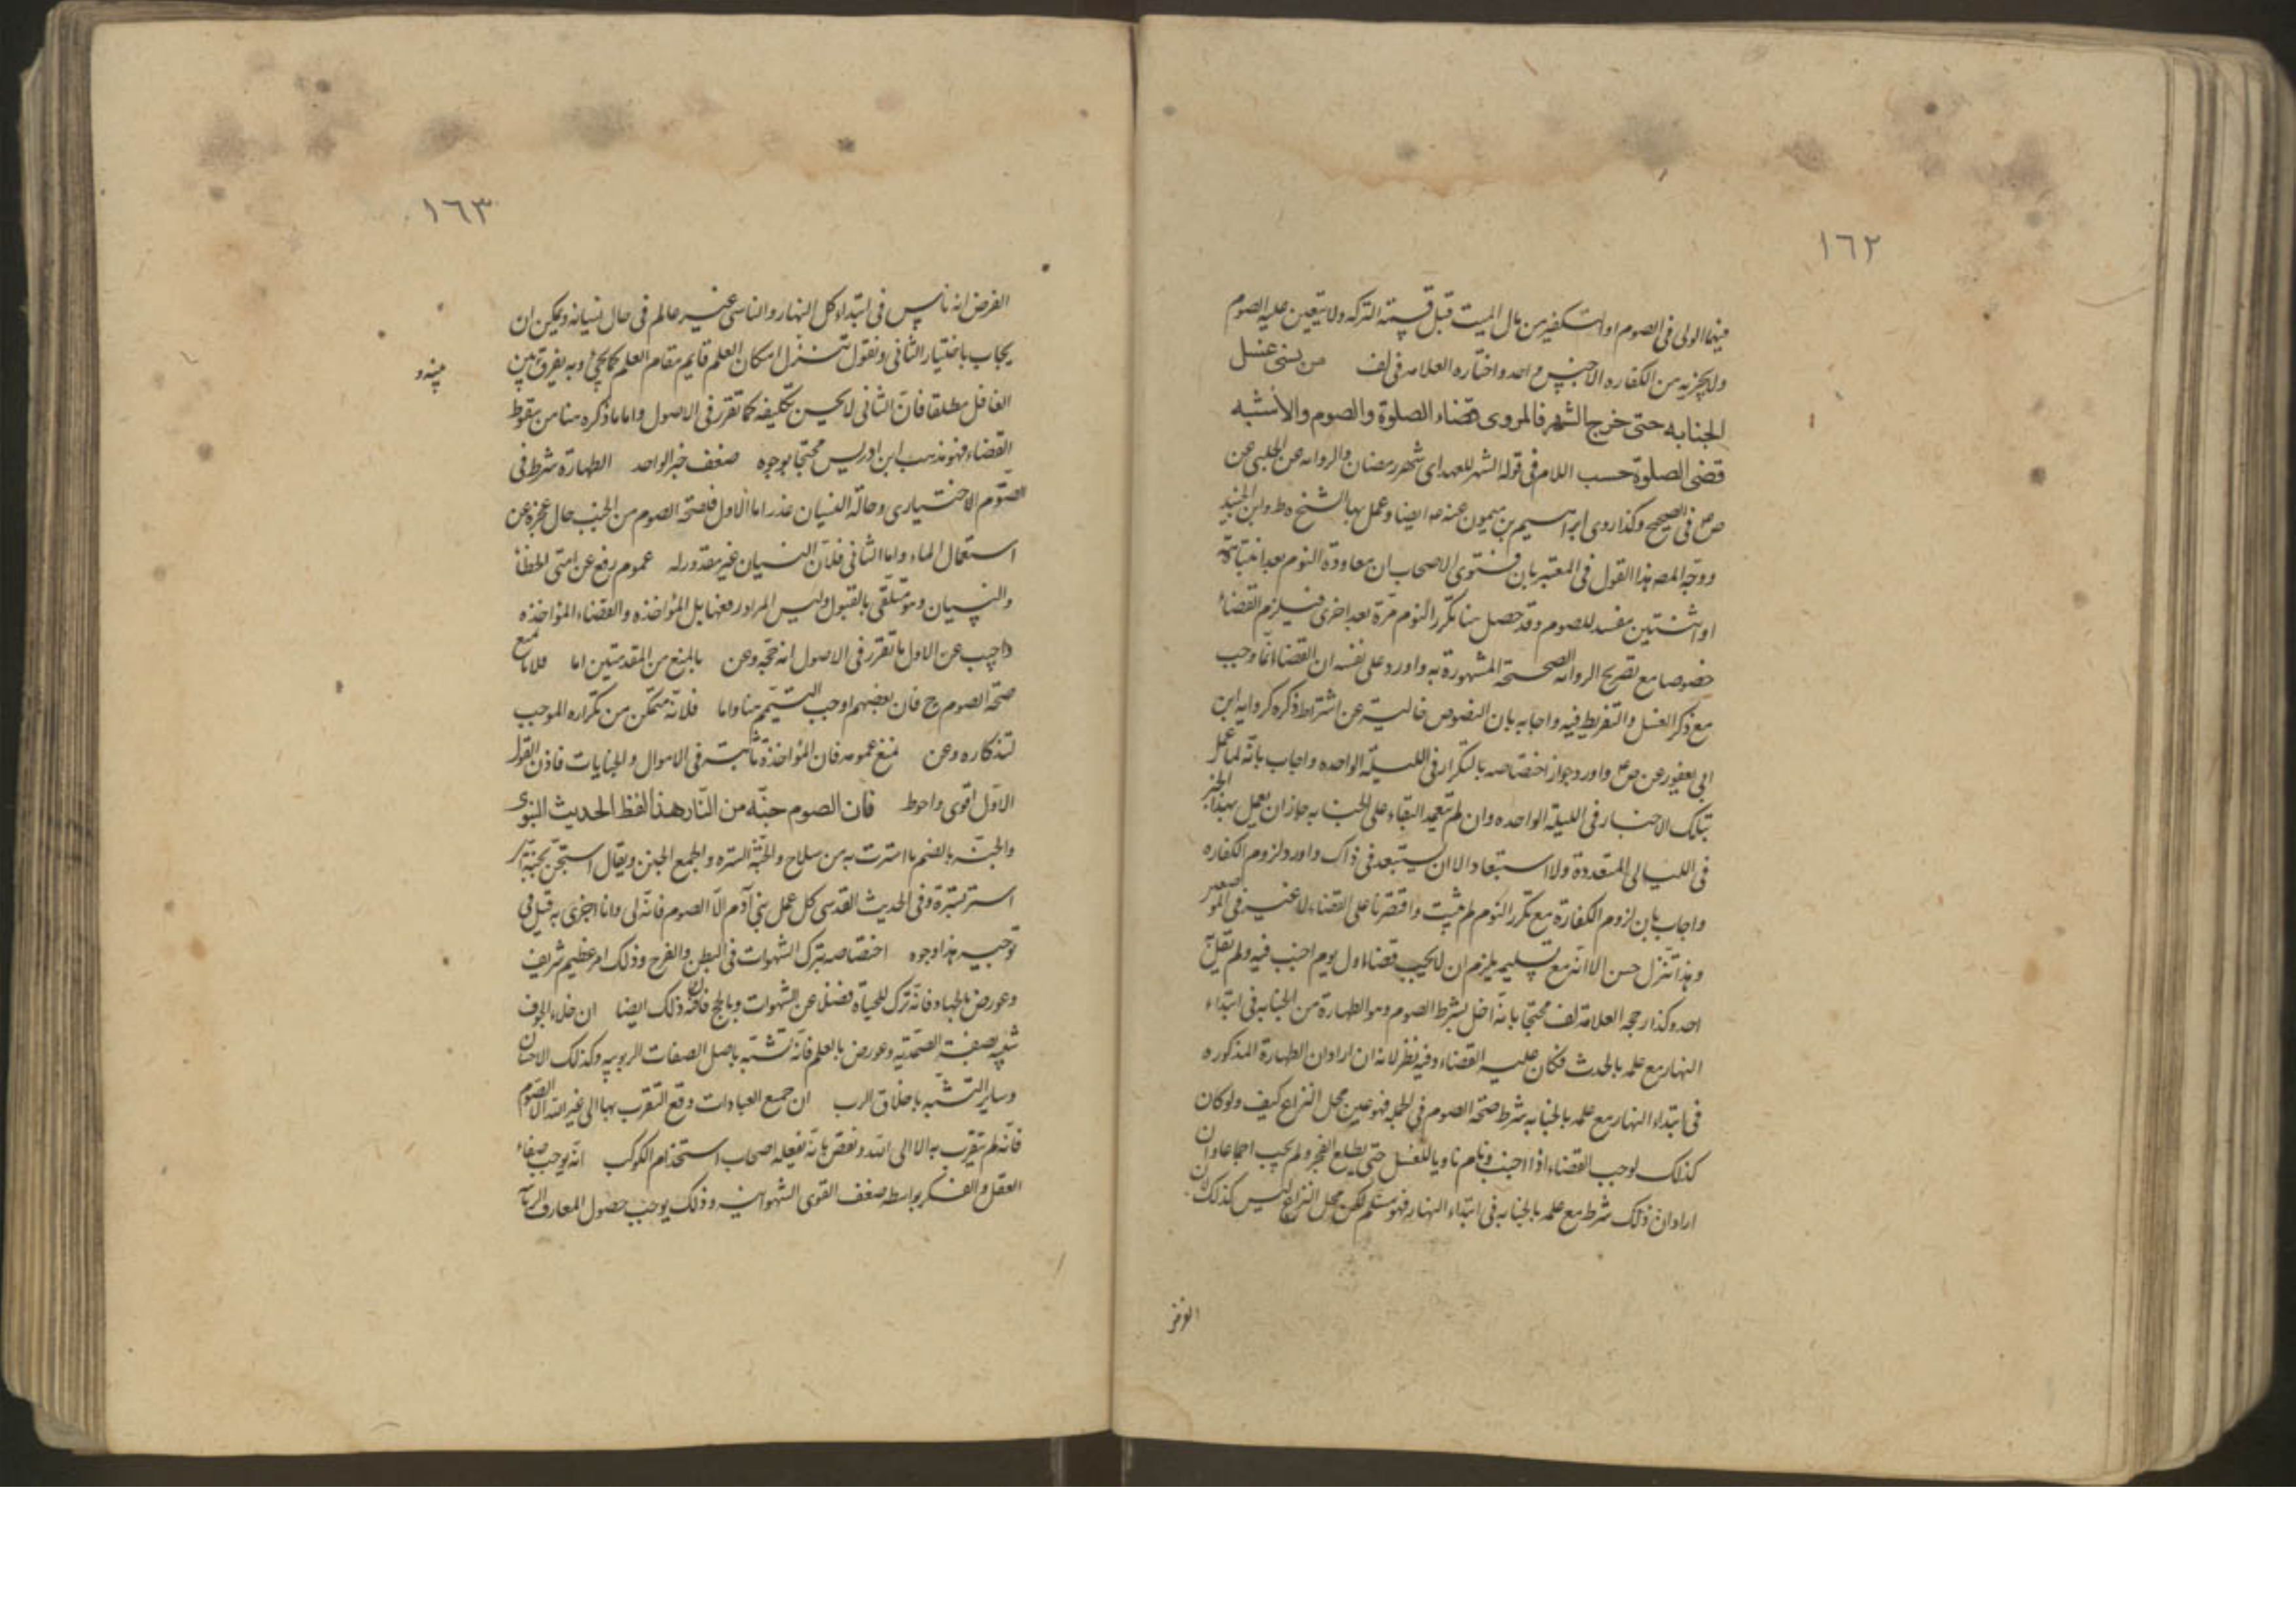 ١٦٢
فيهما الولى فى الصوم او التكفير من مال الميت قبل قسمة التركه ولا يتعين عليه الصوم
ولا يجزيه من الكفاره الا جنس واحد واختاره العلامه فى لف من نسى غسل
الجنابه حتى خرج الشهر فالمروى قضاء الصلوة والصوم والاشبه
قضى الصلوة حسب اللام فى قوله الشهر للعهد اى شهر رمضان والروايه عن الحلبى عن
ص ع فى الصحيح وكذا روى ابراهيم بن ميمون عنه ع ايضا وعمل بها الشيخ ه ط وابن الجنيد
ووجّه المصه هذا القول فى المعتبر بان فتوى الاصحاب ان معاودة النوم بعد انتباهة
او اثنتين مفسد للصوم وقد حصل هنا تكرر النوم مرة بعد اخرى فيلزم القضاء
خصوصا مع تصريح الروايه الصحيحة المشهورة به واورد على نفسه ان القضاء انما وجب
مع ذكر الغسل والتفريط فيه واجابه بان النصوص خالية عن اشتراط ذكره كروايه ابن
ابى يعفور عن ص ع واورد جواز اختصاصه بالتكرار فى الليلة الواحده واجاب بانه لما عمل
بتلك الاخبار فى الليلة الواحده وان لم يتعمد البقاء على الجنابه جاز ان يعمل بهذا الخبر
فى الليالى المتعددة ولا استبعاد الا ان يستبعد فى ذاك واورد لزوم الكفاره
واجاب بان لزوم الكفارة مع تكرر النوم لم يثبت واقتصرنا على القضاء لا غير فى الموضعين
وهذا تنزل حسن الا انه مع تسليمه يلزم ان لا يجب قضاء اول يوم اجنب فيه ولم يقل به
احد وكذا رجحه العلامة لف محتجا بانه اخل بشرط الصوم وهو الطهارة من الجنابه فى ابتداء
النهار مع علمه بالحدث فكان عليه القضاء وفيه نظر لانه ان اراد ان الطهارة المذكوره
فى ابتداء النهار مع علمه بالجنابه شرط صحة الصوم فى الجمله فهو عين محل النزاع كيف ولو كان
كذلك لوجب القضاء اذا اجنب ونام ناويا للغسل حتى يطلع الفجر ولم يجب اجماعا وان
اراد ان ذلك شرط مع علمه بالجنابه فى ابتداء النهار فهو مسلم لكن محل النزاع ليس كذلك لان
١٦٣
الفرض انه ناس فى ابتداء كل النهار والناسى غير عالم فى حال نسيانه ويمكن ان
يجاب باختيار الثانى ونقول تنزل امكان العلم قايم مقام العلم كما يجئ وبه يفرق بينه و
الغافل مطلقا فان الثانى لا يحسن تكليفه كما تقرر فى الاصول واما ما ذكره هنا من سقوط
القضاء فهو مذهب ابن ادريس محتجا بوجوه ضعف خبر الواحد الطهارة شرط فى
الصوم الاختيارى وحالة النسيان عذر اما الاول فلصحة الصوم من الجنب حال عجزه عن
استعمال الماء واما الثانى فلان النسيان غير مقدور له عموم رفع عن امتى الخطأ
والنسيان وهو متلقى بالقبول وليس المراد رفعها بل المؤاخذه والقضاء المؤاخذه
واجيب عن الاول بما تقرر فى الاصول انه حجه وعن بالمنع من المقدمتين اما فلا مانع
صحة الصوم ح فان بعضهم اوجب التيمم هنا واما فلانه متمكن من تكراره الموجب
لتذكاره وعن بمنع عمومه فان المؤاخذة ثابتة فى الاموال والجنايات فاذن القول
الاول اقوى واحوط فان الصوم جنّه من النّار هذا لفظ الحديث النبوى
والجنه بالضم ما استترت به من سلاح والجنّة الستره والجمع الجنن ويقال استجن بجنّة اى
استتر بسترة وفى الحديث القدسى كل عمل بنى آدم الا الصوم فانه لى وانا اجزى به قيل فى
توجيه هذا وجوه اختصاصه بترك الشهوات فى البطن والفرج وذلك امر عظيم شريف
وعورض بالجهاد فانه ترك للحياة فضلا عن الشهوات وبالحج فان فيه ذلك ايضا ان خلاء الجوف
شبيه بصفة الصمديه وعورض بالعلم فانه تشبه باصل الصفات الربوبيه وكذلك الاحسان
وساير التشبه باخلاق الرب ان جميع العبادات وقع التقرب بها الى غير الله الا الصوم
فانه لم يتقرب به الا الى الله ونقض بانه يفعله اصحاب استخدام الكوكب انه يوجب صفاء
العقل والفكر بواسطه ضعف القوى الشهوانيه وذلك يوجب حصول المعارف